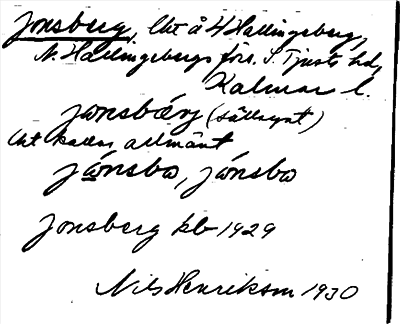 Jonsberg, Lht å H Hallingeberg,
N. Hallingebergs förs. S. Tjusts hd,
Kalmar l.
jonsbærj (sällsynt)
Lht kallas allmänt
jónsbo, jónsbo
Jonsberg kb 1929
Nils Henrikson 1930